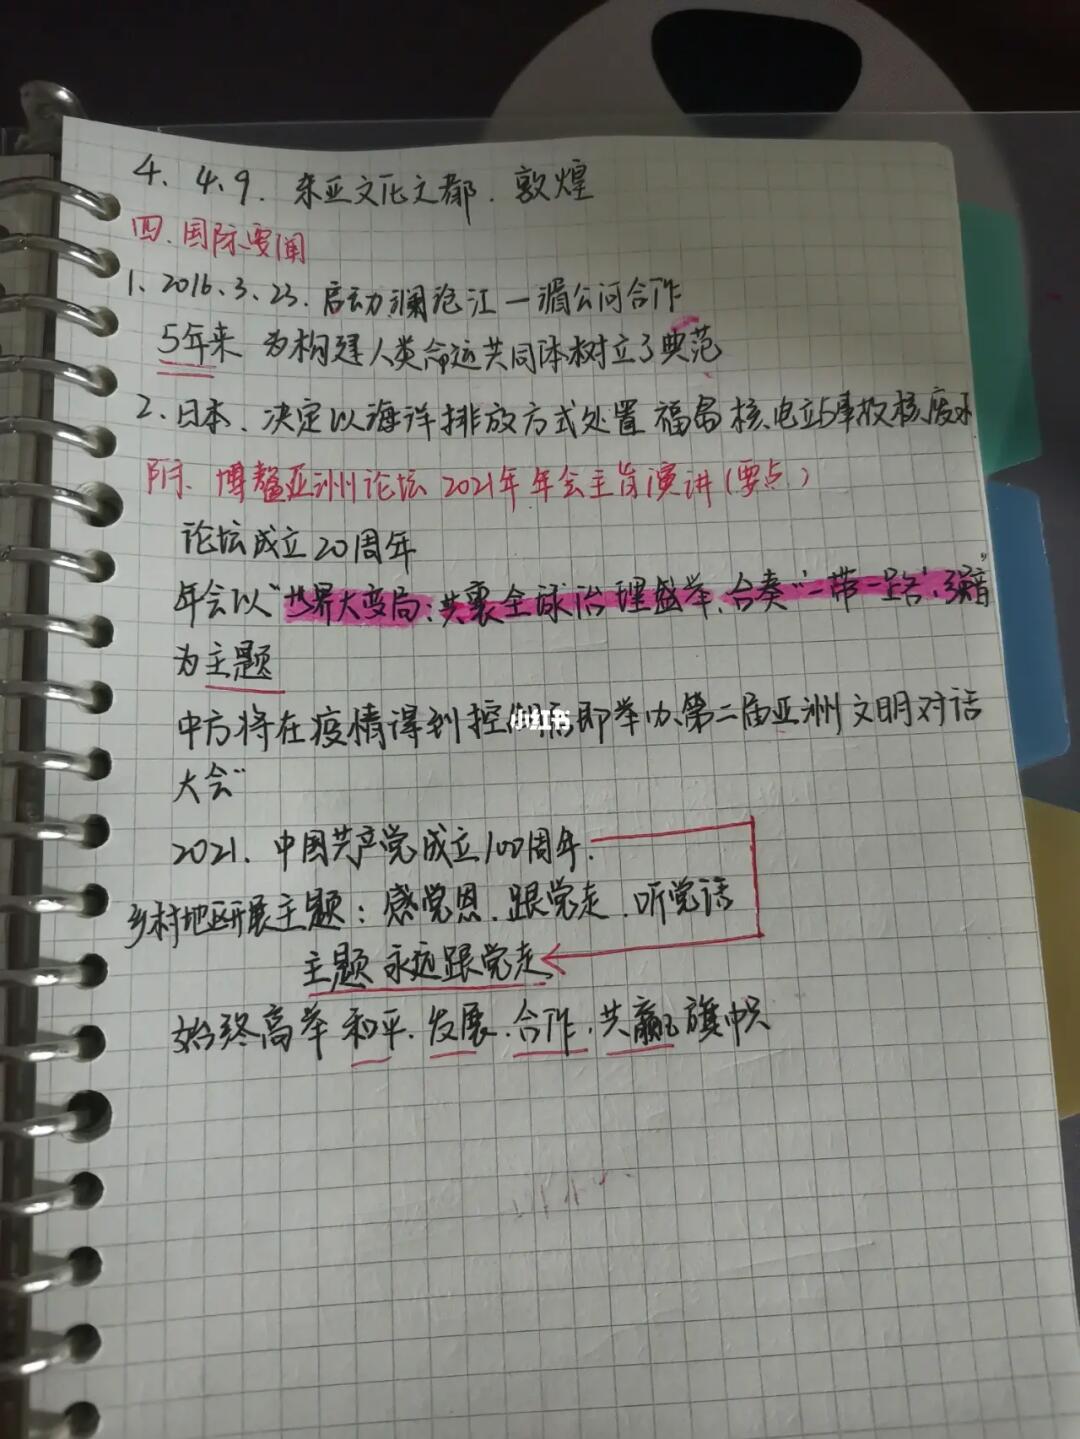 4. 4.9. 东亚文化之都. 敦煌
四. 国际要闻
1. 2016.3.23. 启动澜沧江—湄公河合作
5年来 为构建人类命运共同体树立了典范
2. 日本. 决定以海洋排放方式处置 福岛核电站事故核废水
附. 博鳌亚洲论坛2021年年会主旨演讲(要点)
论坛成立20周年
年会以"世界大变局: 共襄全球治理盛举. 合奏"一带一路"强音"
为主题
中方将在疫情得到控制后即举办第二届亚洲文明对话
小红书
大会"
2021. 中国共产党成立100周年.
乡村地区开展主题: 感党恩. 跟党走. 听党话
主题 永远跟党走
始终高举 和平. 发展. 合作. 共赢 旗帜